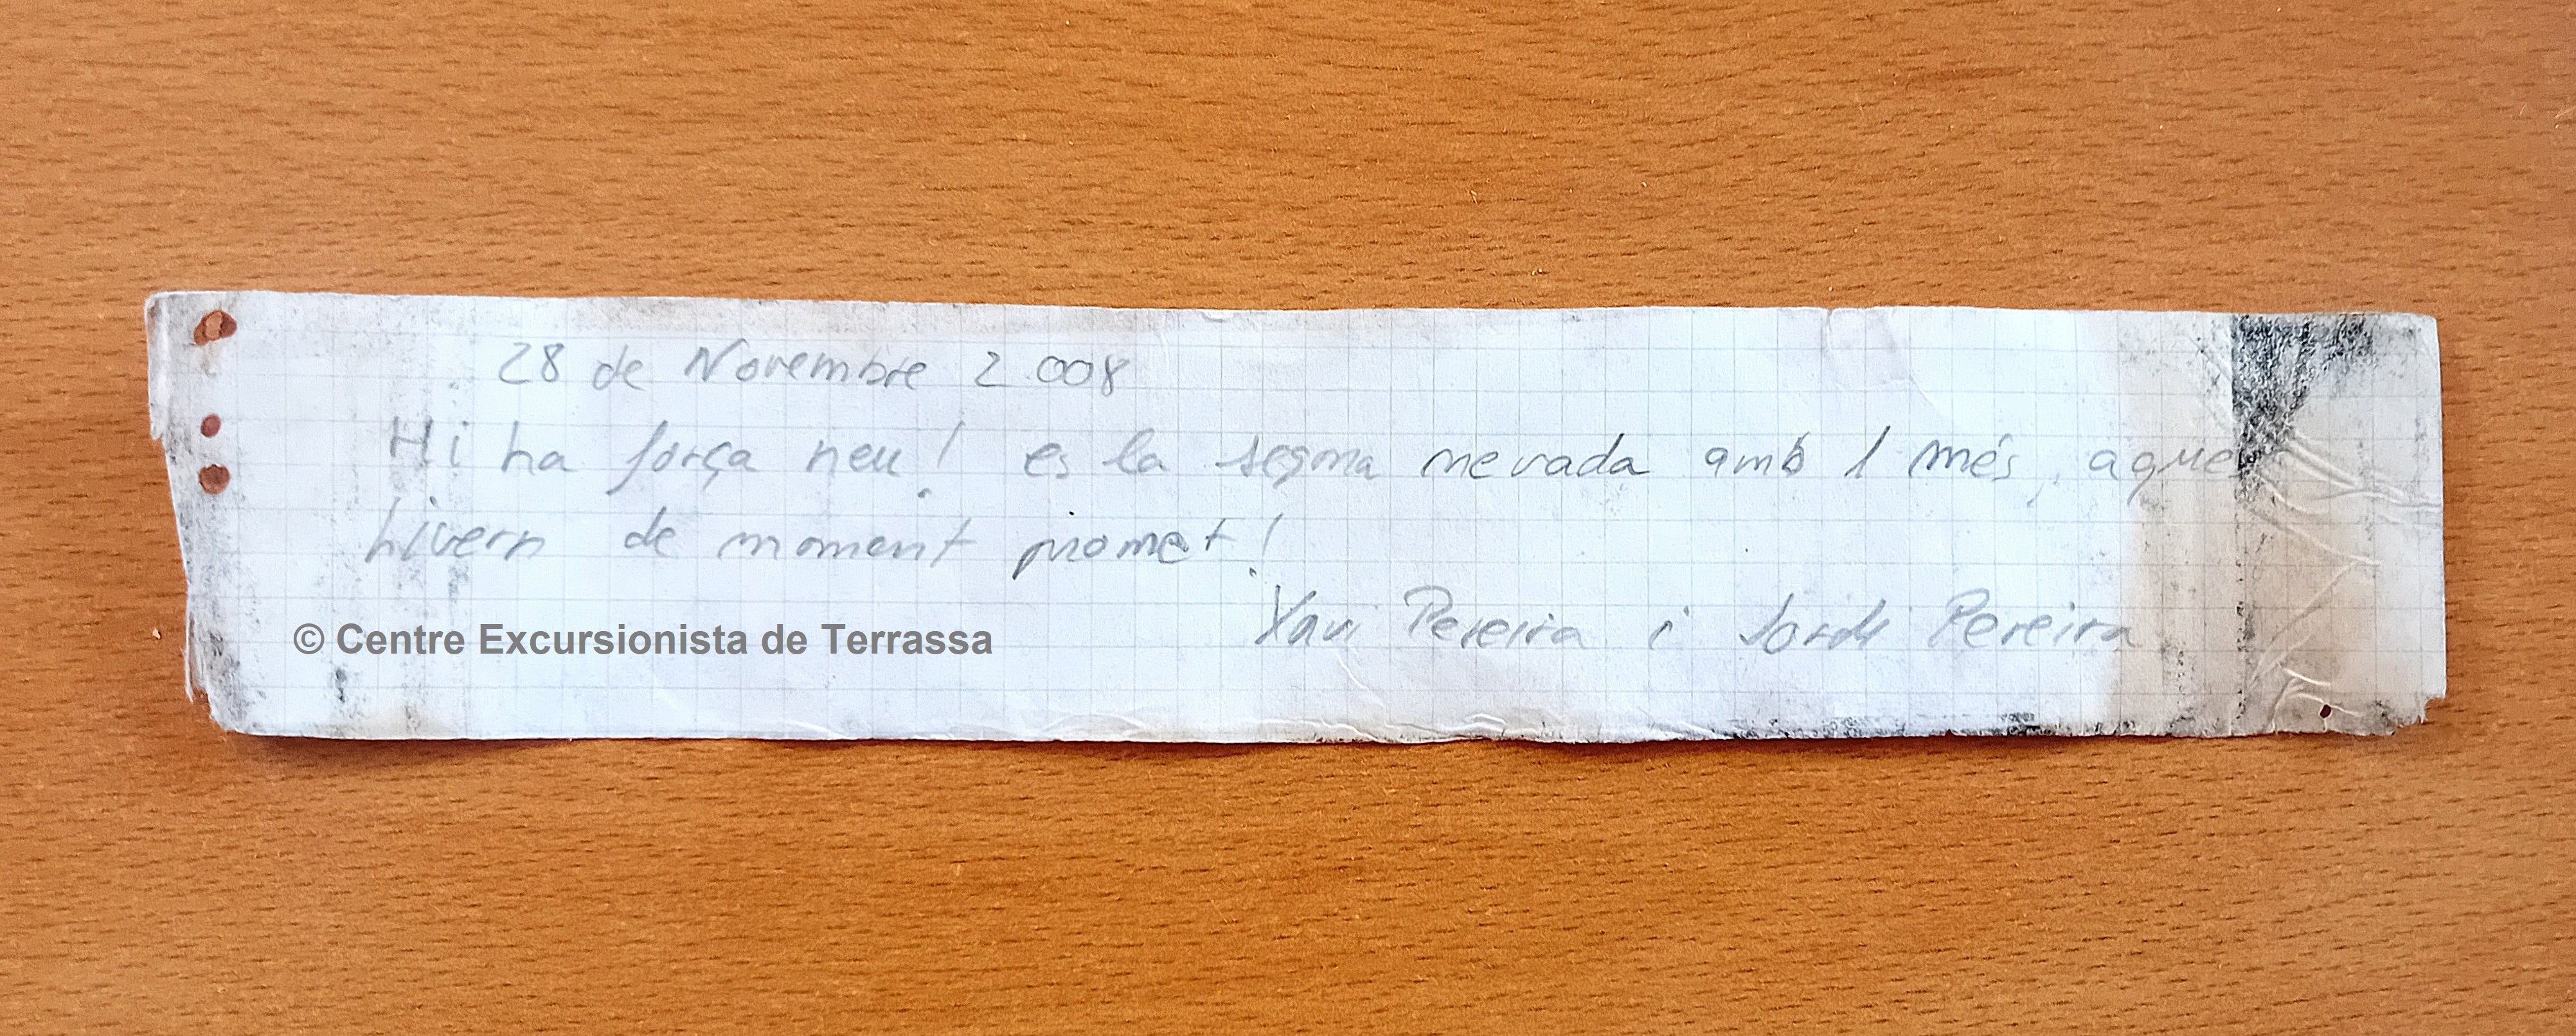 28 de Novembre 2.008
Hi ha força neu! es la segona nevada amb 1 més, aquest
hivern de moment promet!
Xavi Pereira i Jordi Pereira
© Centre Excursionista de Terrassa